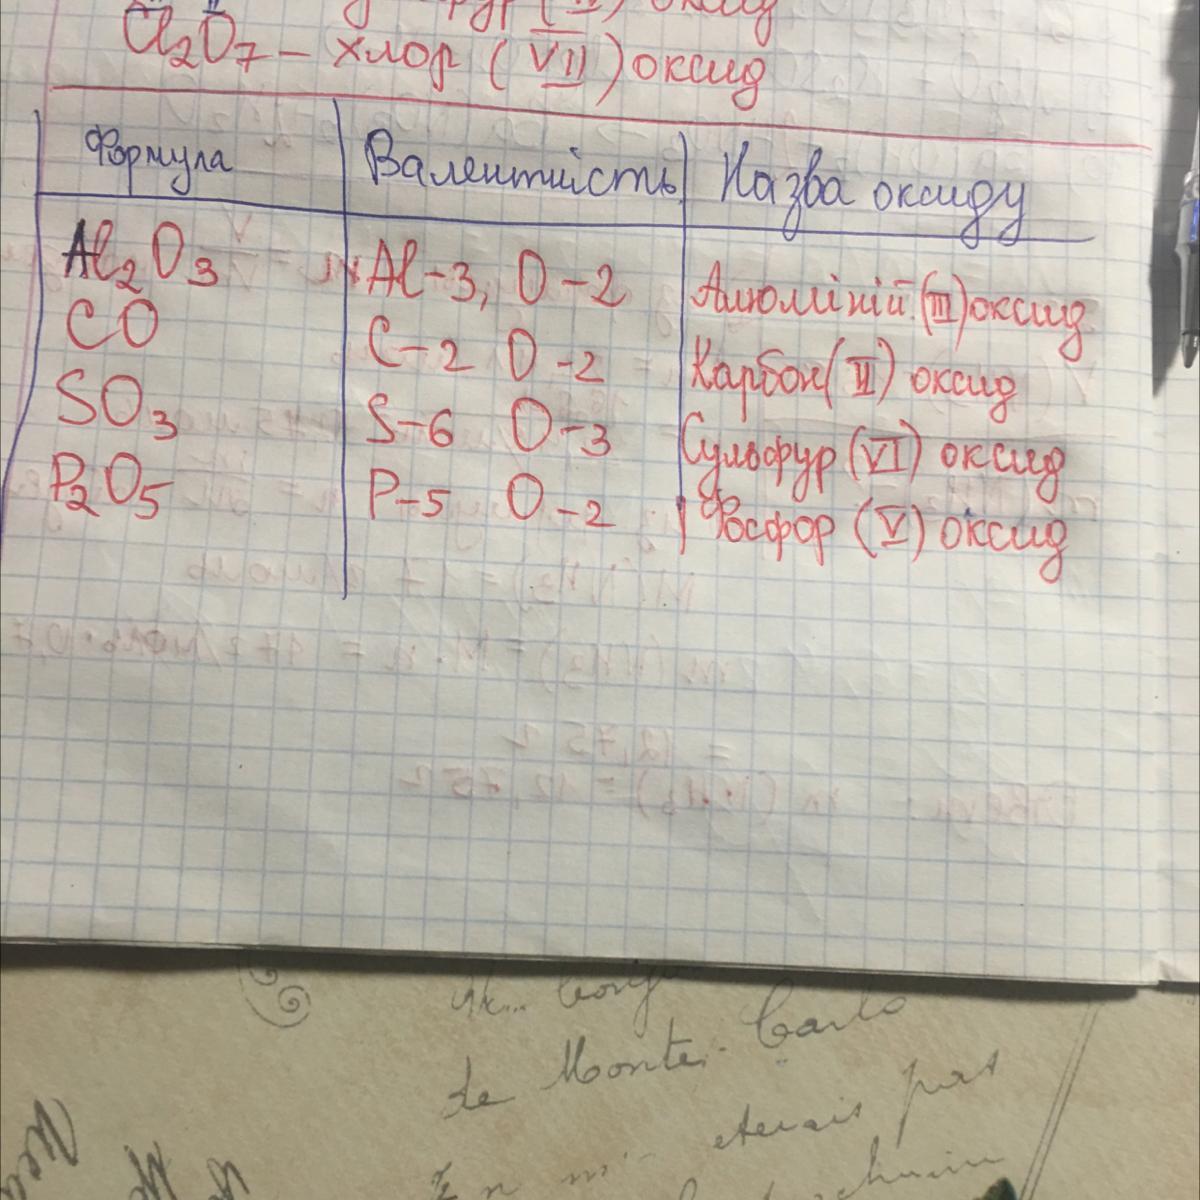 Cl2O7 – хлор (VII) оксид
Формула Валентність Назва оксиду
Al2O3 Al-3, O-2 Алюміній (III) оксид
CO C-2 O-2 Карбон (II) оксид
SO3 S-6 O-3 Сульфур (VI) оксид
P2O5 P-5 O-2 Фосфор (V) оксид
de Monte-Carlo
etenais pas